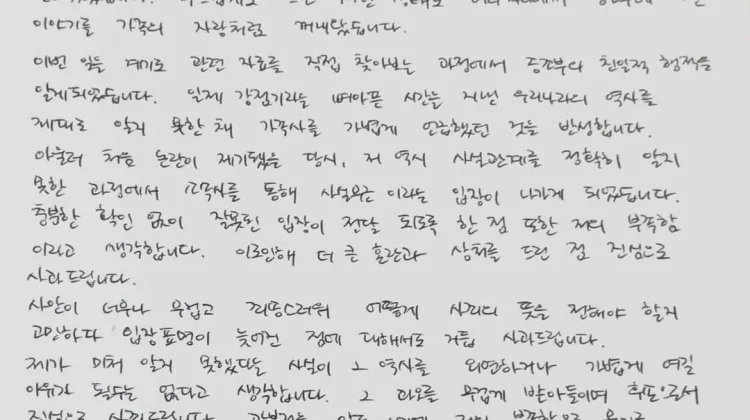 이야기를 가족의 자랑처럼 꺼내놨습니다.
이번 일을 계기로 관련 자료를 직접 찾아보는 과정에서 증조부의 친일적 행적을
알게되었습니다. 일제 강점기라는 뼈아픈 시간을 지닌 우리나라의 역사를
제대로 알지 못한 채 가족사를 가볍게 언급했던 것을 반성합니다.
아울러 처음 논란이 제기됐을 당시, 저 역시 사실관계를 정확히 알지
못한 과정에서 소속사를 통해 사실무근이라는 입장이 나가게 되었습니다.
충분한 확인 없이 잘못된 입장이 전달 되도록 한 점 또한 저의 부족함
이라고 생각합니다. 이로인해 더 큰 혼란과 상처를 드린 점 진심으로
사과드립니다.
사안이 너무나 무겁고 죄송스러워 어떻게 사죄의 뜻을 전해야 할지
고민하다 입장표명이 늦어진 점에 대해서도 거듭 사과드립니다.
제가 미처 알지 못했다는 사실이 그 역사를 외면하거나 가볍게 여길
이유가 될수는 없다고 생각합니다. 그 과오를 무겁게 받아들이며 후손으로서